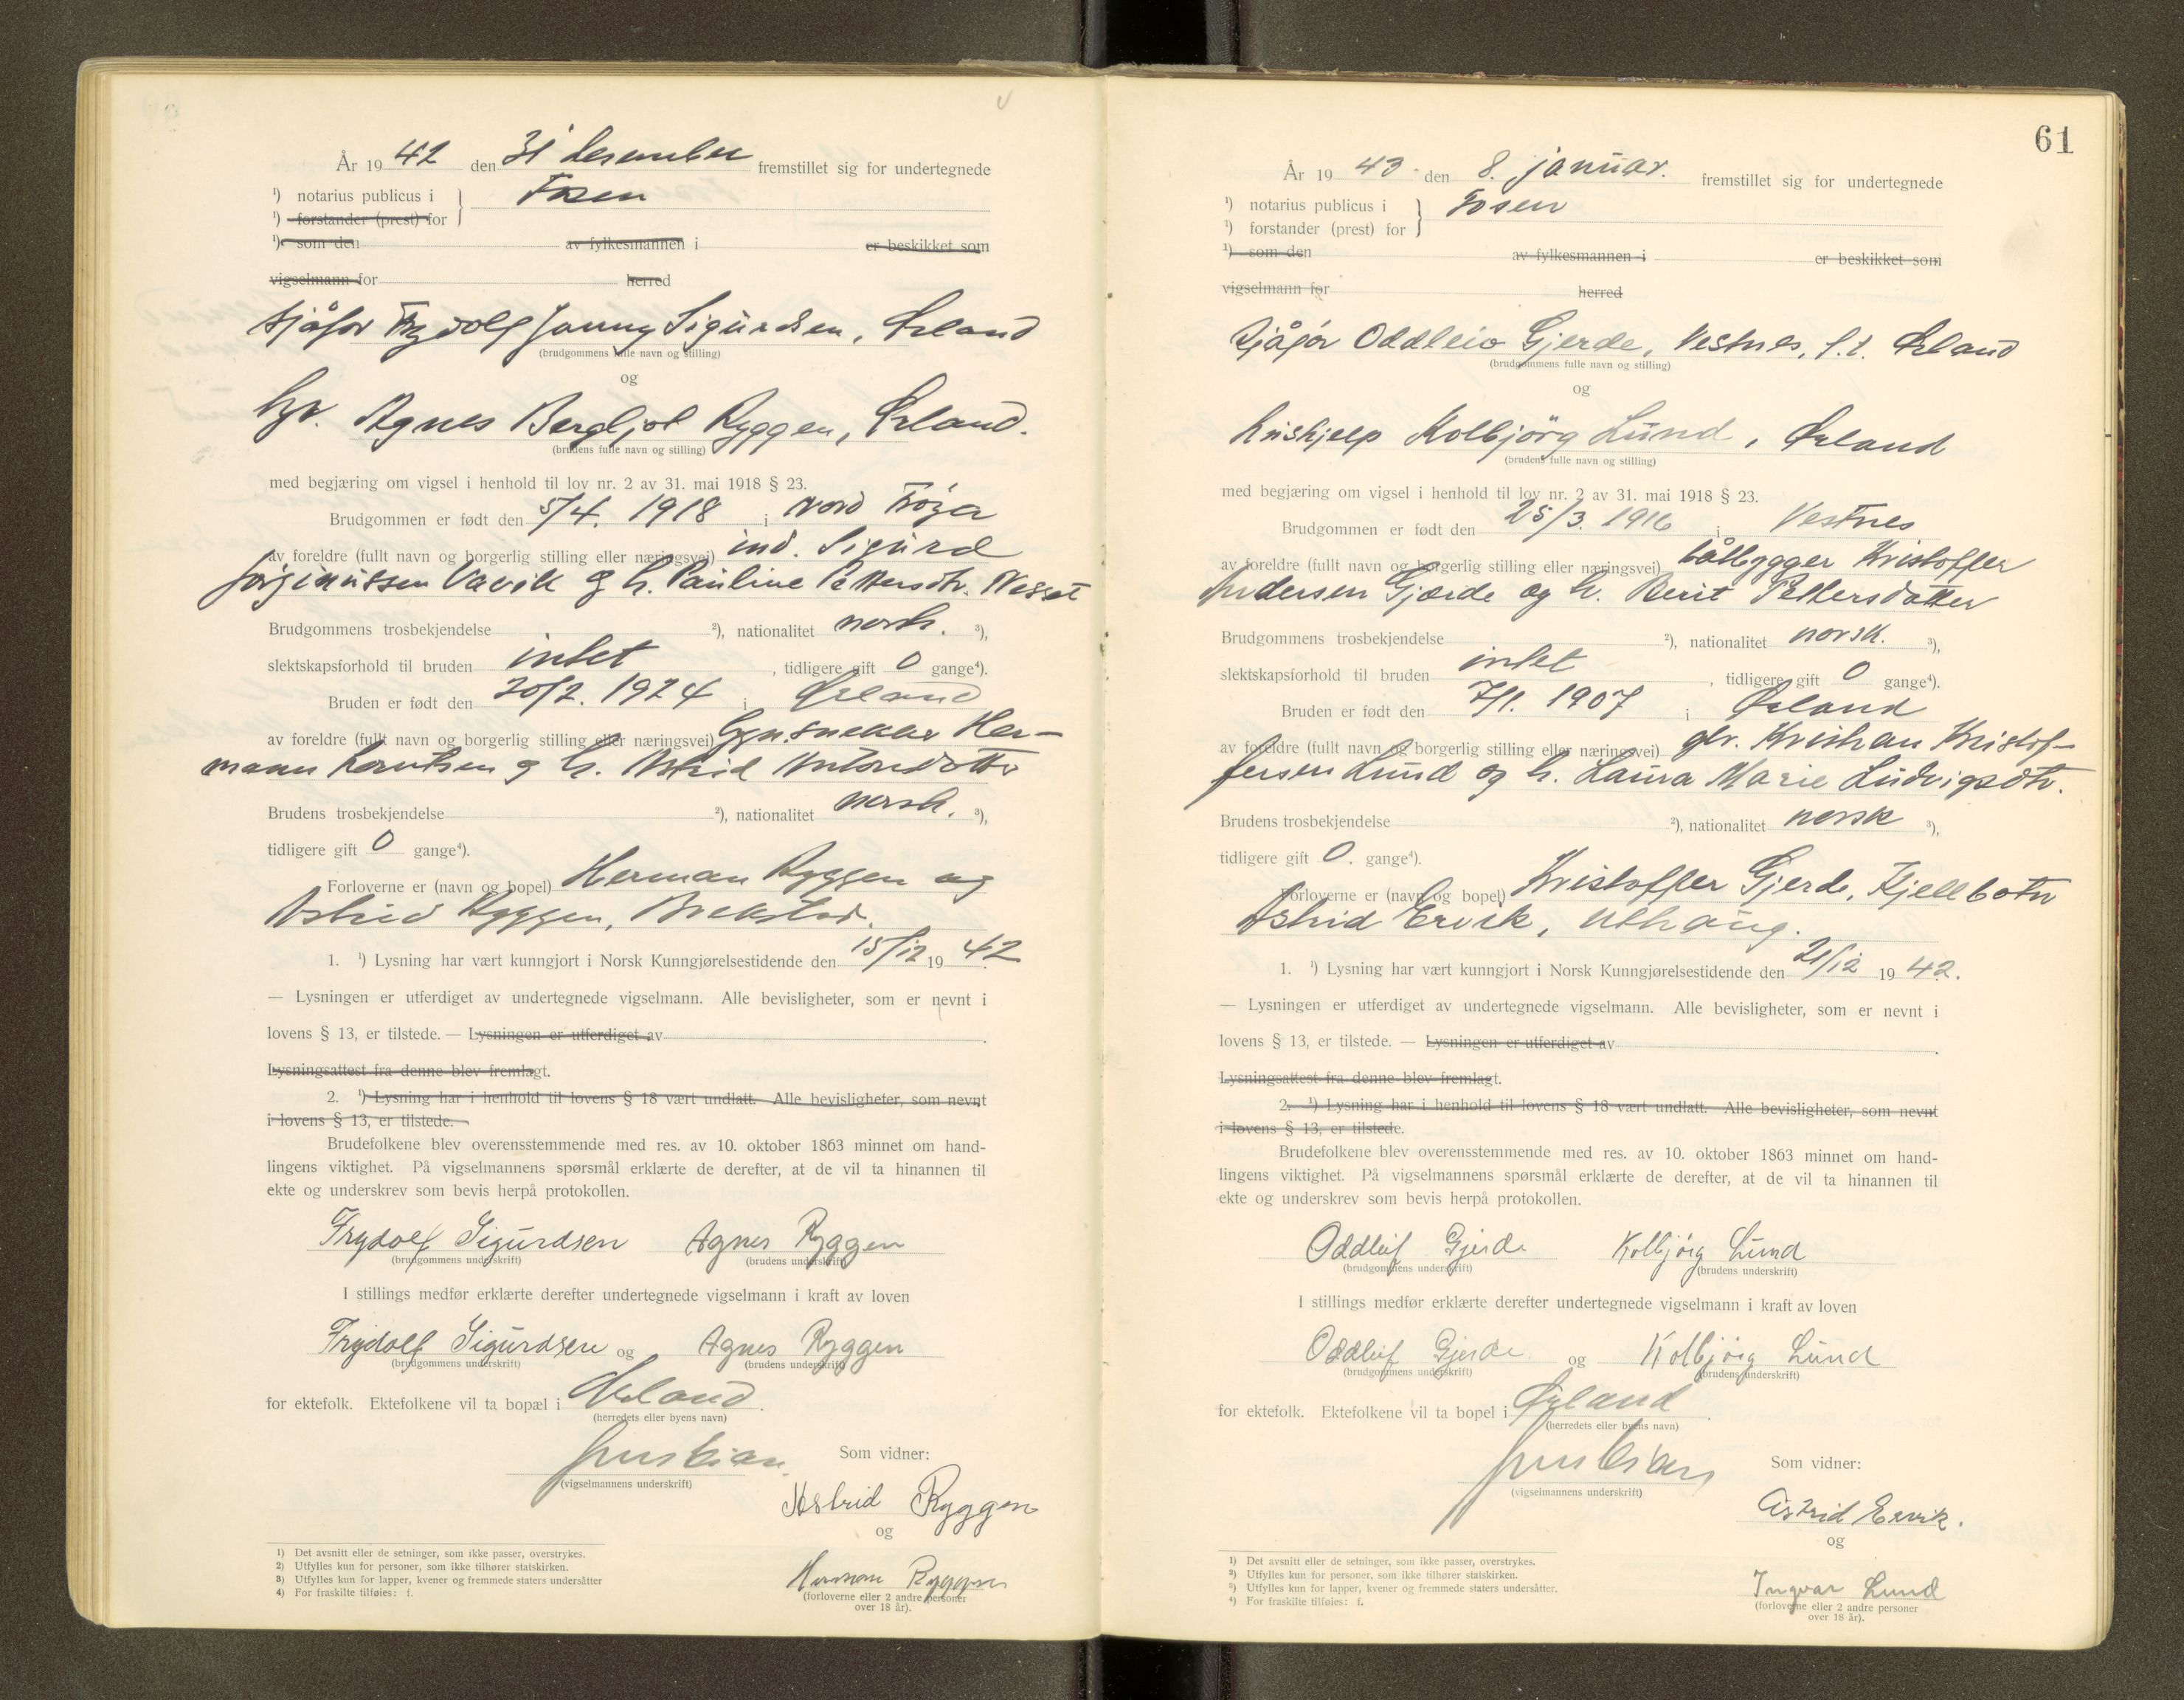 År 1942 den 31 desember fremstillet sig for undertegnede
¹) notarius publicus i } Fosen
¹) forstander (prest) for
¹) som den av fylkesmannen i er beskikket som
vigselmann for herred
sjåfør Frydolf Sigurdsen, Ørland
(brudgommens fulle navn og stilling)
og
Agnes Bergljot Ryggen, Ørland.
(brudens fulle navn og stilling)
med begjæring om vigsel i henhold til lov nr. 2 av 31. mai 1918 § 23.
Brudgommen er født den 5/4. 1918 i Nord Frøya
av foreldre (fullt navn og borgerlig stilling eller næringsvei) ind. Sigurd
Vavik og h. Pauline Pettersdtr. Nesset
Brudgommens trosbekjendelse ²), nationalitet norsk. ³),
slektskapsforhold til bruden intet, tidligere gift 0 gange⁴).
Bruden er født den 20/2. 1924 i Ørland
av foreldre (fullt navn og borgerlig stilling eller næringsvei) Her-
mann og h. Astrid Antonsdotter
Brudens trosbekjendelse ²), nationalitet norsk. ³),
tidligere gift 0 gange⁴).
Forloverne er (navn og bopel) Herman Ryggen og
Astrid Ryggen, Brekstad.
1. ¹) Lysning har vært kunngjort i Norsk Kunngjørelsestidende den 15/12 1942.
— Lysningen er utferdiget av undertegnede vigselmann. Alle bevisligheter, som er nevnt i
lovens § 13, er tilstede. — Lysningen er utferdiget av .
Lysningsattest fra denne blev fremlagt.
2. ¹) Lysning har i henhold til lovens § 18 vært undlatt. Alle bevisligheter, som nevnt
i lovens § 13, er tilstede.
Brudefolkene blev overensstemmende med res. av 10. oktober 1863 minnet om hand-
lingens viktighet. På vigselmannens spørsmål erklærte de derefter, at de vil ta hinannen til
ekte og underskrev som bevis herpå protokollen.
Frydolf Sigurdsen Agnes Ryggen
(brudgommens underskrift) (brudens underskrift)
I stillings medfør erklærte derefter undertegnede vigselmann i kraft av loven
Frydolf Sigurdsen og Agnes Ryggen
(brudgommens underskrift) (brudens underskrift)
for ektefolk. Ektefolkene vil ta bopæl i Ørland.
(herredets eller byens navn)
Som vidner:
(vigselmannens underskrift)
Astrid Ryggen
og
Herman Ryggen
(forloverne eller 2 andre personer
over 18 år).
1) Det avsnitt eller de setninger, som ikke passer, overstrykes.
2) Utfylles kun for personer, som ikke tilhører statskirken.
3) Utfylles kun for lapper, kvener og fremmede staters undersåtter
4) For fraskilte tilføies: f.
61
År 1943 den 8. januar. fremstillet sig for undertegnede
¹) notarius publicus i } Fosen
¹) forstander (prest) for
¹) som den av fylkesmannen i er beskikket som
vigselmann for herred
Sjåfør Oddleiv Gjerde, Vestnes, f.t. Ørland
(brudgommens fulle navn og stilling)
og
hushjelp Kolbjörg Lund, Ørland
(brudens fulle navn og stilling)
med begjæring om vigsel i henhold til lov nr. 2 av 31. mai 1918 § 23.
Brudgommen er født den 25/3. 1916 i Vestnes
av foreldre (fullt navn og borgerlig stilling eller næringsvei) båtbygger Kristoffer
Andersen Gjærde og h. Berit Pettersdatter
Brudgommens trosbekjendelse ²), nationalitet norsk. ³),
slektskapsforhold til bruden intet, tidligere gift 0 gange⁴).
Bruden er født den 7/1. 1907 i Ørland
av foreldre (fullt navn og borgerlig stilling eller næringsvei) gbr. Kristian Kristof-
fersen Lund og h. Laura Marie Ludvigsdtr.
Brudens trosbekjendelse ²), nationalitet norsk ³),
tidligere gift 0. gange⁴).
Forloverne er (navn og bopel) Kristoffer Gjerde, Fjellbotn
Astrid Ervik, Uthaug.
1. ¹) Lysning har vært kunngjort i Norsk Kunngjørelsestidende den 21/12 1942.
— Lysningen er utferdiget av undertegnede vigselmann. Alle bevisligheter, som er nevnt i
lovens § 13, er tilstede. — Lysningen er utferdiget av .
Lysningsattest fra denne blev fremlagt.
2. ¹) Lysning har i henhold til lovens § 18 vært undlatt. Alle bevisligheter, som nevnt
i lovens § 13, er tilstede.
Brudefolkene blev overensstemmende med res. av 10. oktober 1863 minnet om hand-
lingens viktighet. På vigselmannens spørsmål erklærte de derefter, at de vil ta hinannen til
ekte og underskrev som bevis herpå protokollen.
Oddleif Gjerde Kolbjórg Lund
(brudgommens underskrift) (brudens underskrift)
I stillings medfør erklærte derefter undertegnede vigselmann i kraft av loven
Oddleif Gjerde og Kolbjórg Lund
(brudgommens underskrift) (brudens underskrift)
for ektefolk. Ektefolkene vil ta bopel i Ørland.
(herredets eller byens navn)
Som vidner:
(vigselmannens underskrift)
Astrid Ervik.
og
Ingvar Lund
(forloverne eller 2 andre personer
over 18 år).
¹) Det avsnitt eller de setninger, som ikke passer, overstrykes.
²) Utfylles kun for personer, som ikke tilhører statskirken.
³) Utfylles kun for lapper, kvener og fremmede staters undersåtter.
⁴) For fraskilte tilføies: f.